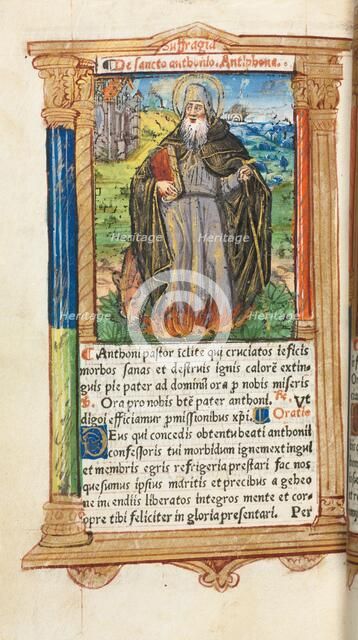 Suffragia
De sancto anthonio. Antiphona.
Anthoni pastor īclite qui cruciatos ieficis
morbos sanas et destruis ignis calorē extin
guis pie pater ad dominū ora p nobis miseris
Ora pro nobis btē pater anthoni. Vt
digni efficiamur pmissionibus xp̄i. Oratio
Deus qui concedis obtentu beati anthonii
confessoris tui morbidum ignem extingui
et membris egris refrigeria prestari fac nos
quesumus ipsius meritis et precibus a gehe
ne incendiis liberatos integros mente et cor
pore tibi feliciter in gloria presentari. Per
Heritage
Images
Heritage
Images
Heritage
Images
Heritage
Images